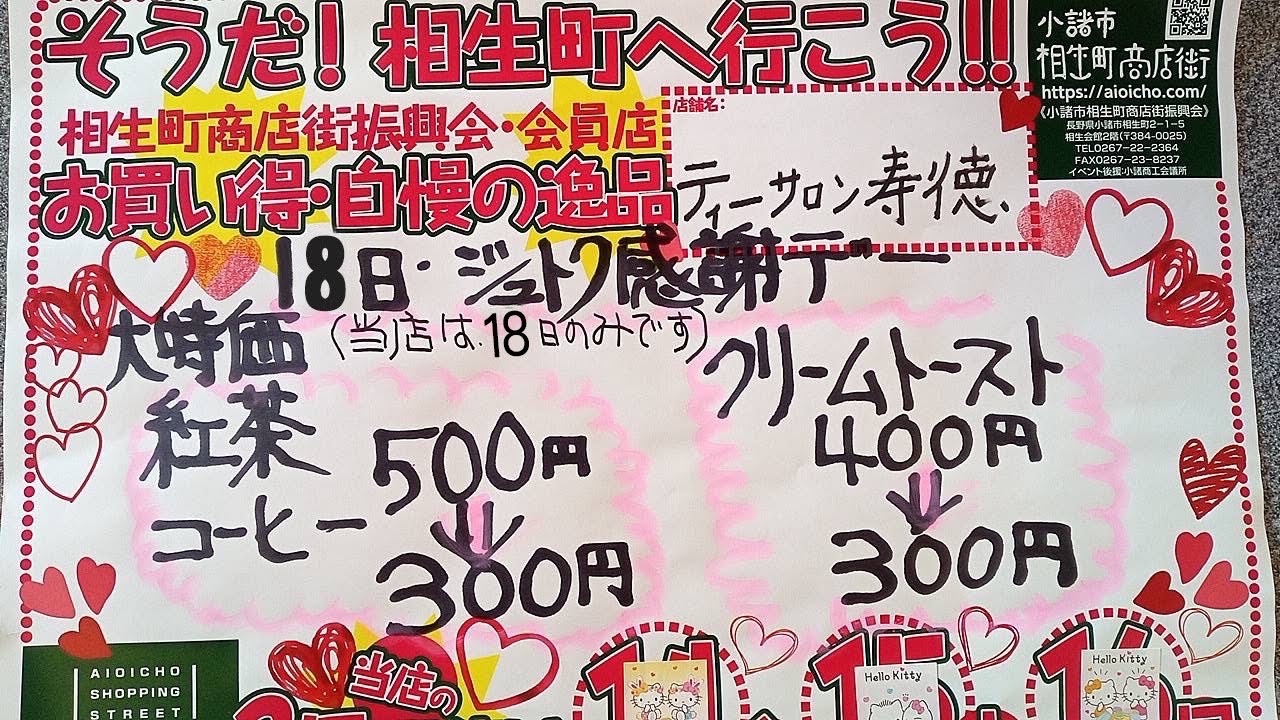 そうだ！相生町へ行こう!!
小諸市
相生町商店街
https://aioicho.com/
《小諸市相生町商店街振興会》
長野県小諸市相生町2-1-5
相生会館2階(〒384-0025)
TEL0267-22-2364
FAX0267-23-8237
イベント後援:小諸商工会議所
相生町商店街振興会・会員店
お買い得・自慢の逸品
店舗名:
ティーサロン寿徳
18日・ジュトク感謝デー
大特価
(当店は、18日のみです)
紅茶
コーヒー
500円
↓
300円
クリームトースト
400円
↓
300円
AIOICHO
SHOPPING
STREET
当店の
Hello Kitty
Hello Kitty